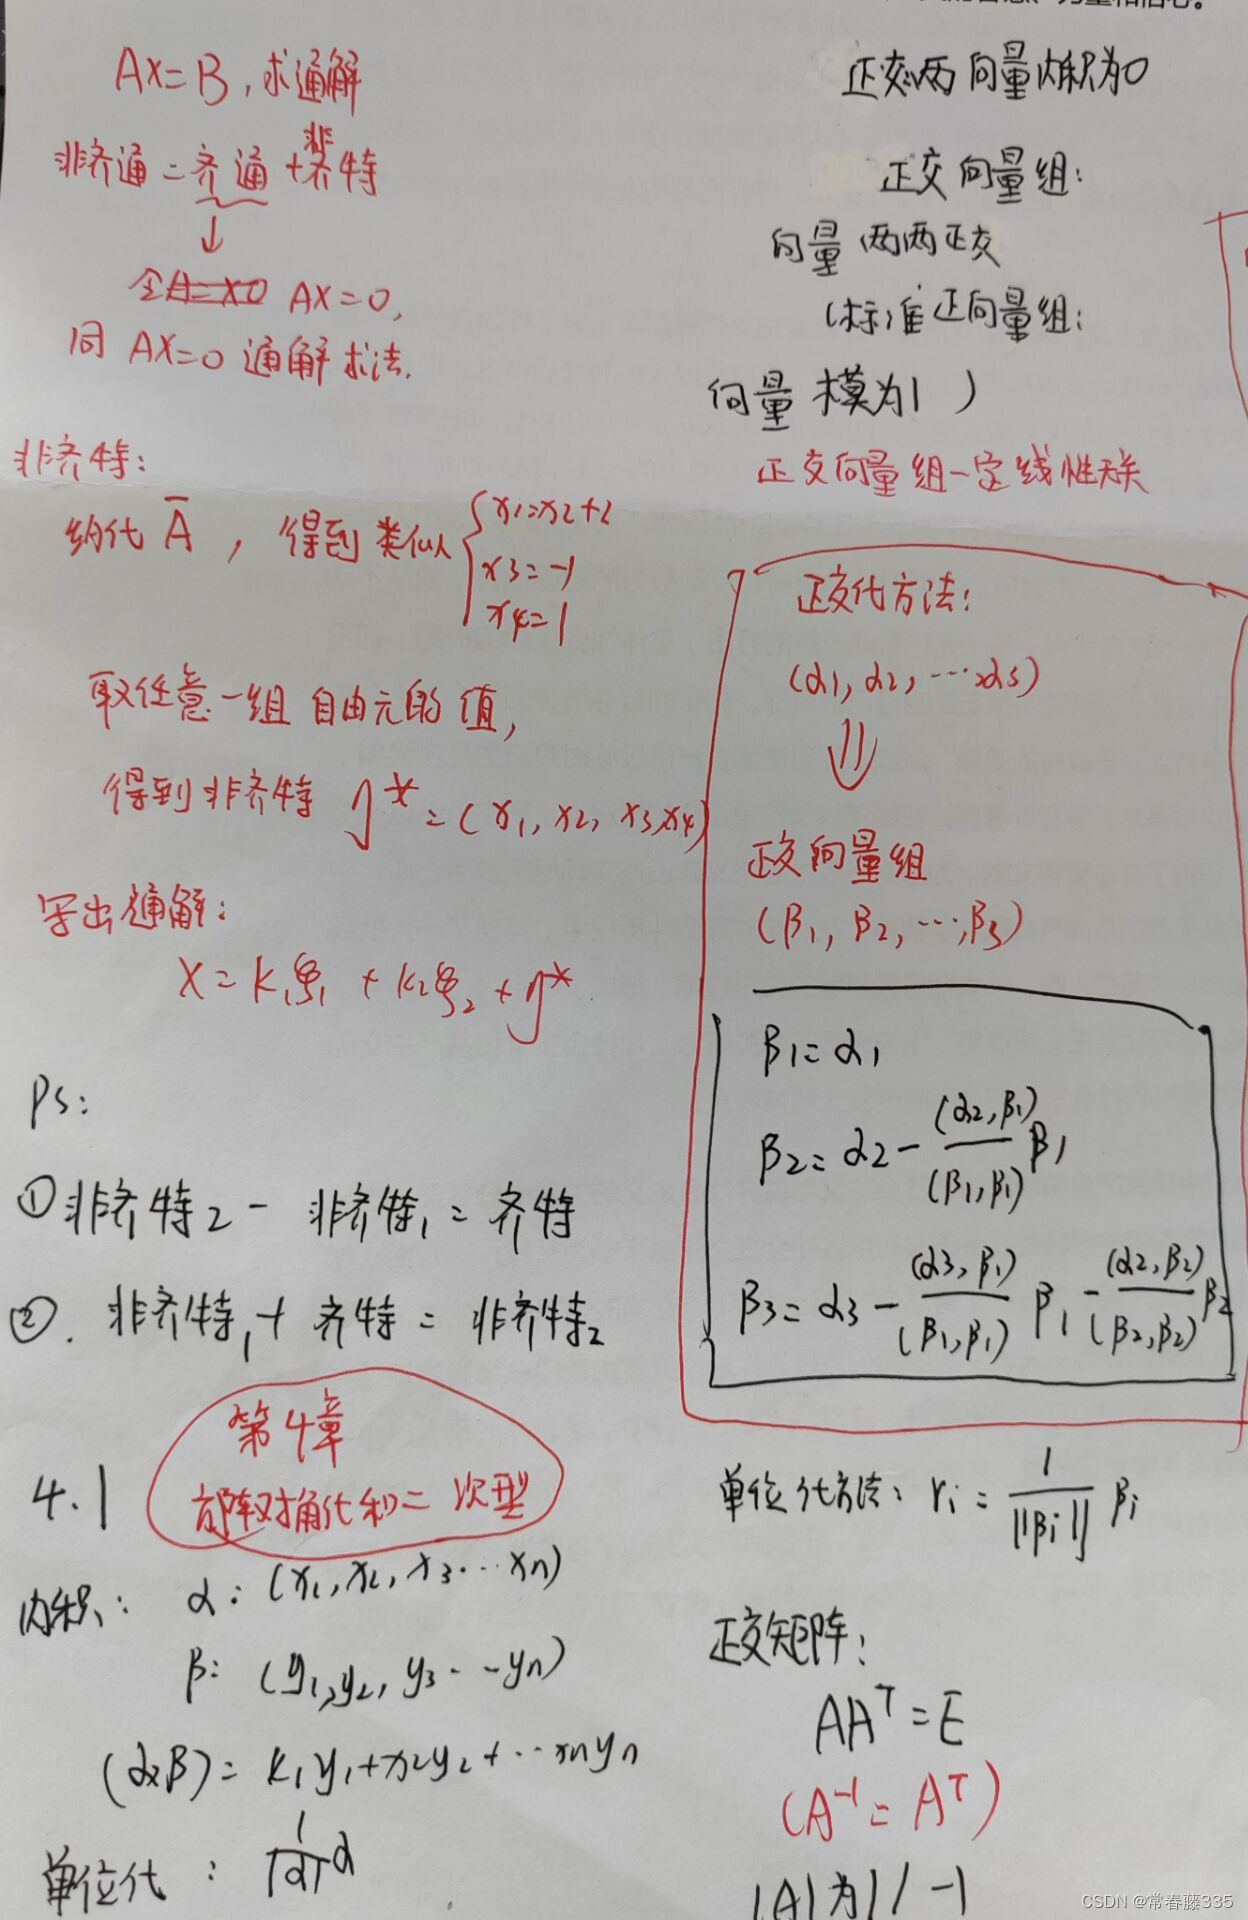 AX=B,求通解
非齐通=齐通+非齐特
↓
令A=X0 AX=0,
同 AX=0 通解求法.
非齐特:
约化 A̅ , 得到 类似 { x1=x2+2
x3=-1
x4=1
取任意一组 自由元的值,
得到非齐特 η* =(x1, x2, x3,x4)
写出通解:
X=k1ξ1 + k2ξ2 + η*
PS:
①非齐特2 - 非齐特1 = 齐特
②. 非齐特1 + 齐特 = 非齐特2
第4章
4.1
部矩对角化和二次型
内积: α: (x1, x2, x3…xn)
β: (y1,y2, y3--yn)
(α,β)= k1y1+x2y2+…xnyn
单位化: 1/|α| α
正交:两向量内积为0
正交向量组:
向量两两正交
(标准正向量组:
向量模为1 )
正交向量组一定线性无关
正交化方法:
(α1, α2, …,αs)
⇓
正交向量组
(β1, β2, …,βs)
β1=α1
β2=α2-(α2,β1)/(β1,β1) β1
β3=α3-(α3,β1)/(β1,β1) β1-(α2,β2)/(β2,β2) β2
单位化方法: γi = 1/||βi|| βi
正交矩阵:
AAᵀ=E
(A⁻¹=Aᵀ)
|A|为1/-1
CSDN @常春藤335